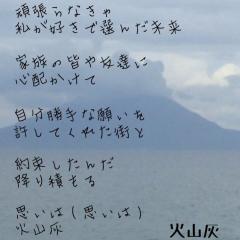 頑張らなきゃ
私が好きで選んだ未来
家族の皆や友達に
心配かけて
自分勝手な願いを
許してくれた街と
約束したんだ
降り積もる
思いは(思いは)
火山灰
火山灰